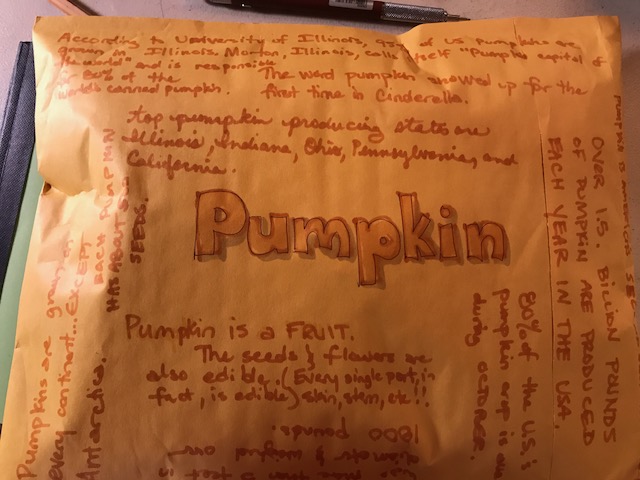 According to University of Illinois, of US pumpkins are
grown in Illinois. Morton, Illinois, calls itself "Pumpkin capital of
the world" and is responsible
for 80% of the
world's canned pumpkin.
The word pumpkin showed up for the
first time in Cinderella.
top pumpkin producing states are
Illinois, Indiana, Ohio, Pennsylvania, and
California.
Pumpkin
Pumpkin is a FRUIT.
The seeds & flowers are
also edible. (Every single part, in
fact, is edible) skin, stem, etc!!
EACH PUMPKIN
HAS ABOUT
SEEDS.
Pumpkins are grown on
every continent...EXCEPT
Antarctica.
OVER 1.5. BILLION POUNDS
OF PUMPKIN ARE PRODUCED
EACH YEAR IN THE USA.
80% of the U.S.'s
pumpkin crop is
during OCTOBER.
diameter & weighed over
1000 pounds.